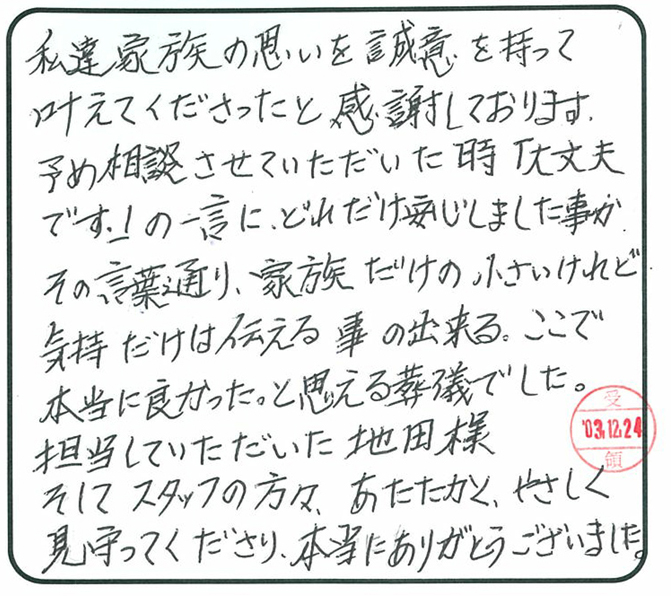 私達家族の思いを誠意を持って
叶えてくださったと感謝しております.
予め相談させていただいた時「大丈夫
です.」の一言に、どれだけ安じしました事か
その言葉通り、家族だけの小さいけれど
気持だけは伝える事の出来る。ここで
本当に良かった。と思える葬儀でした。
担当していただいた地田様
そしてスタッフの方々、あたたかく、やさしく
見守ってくださり、本当にありがとうございました。
受
'03.12.24
領